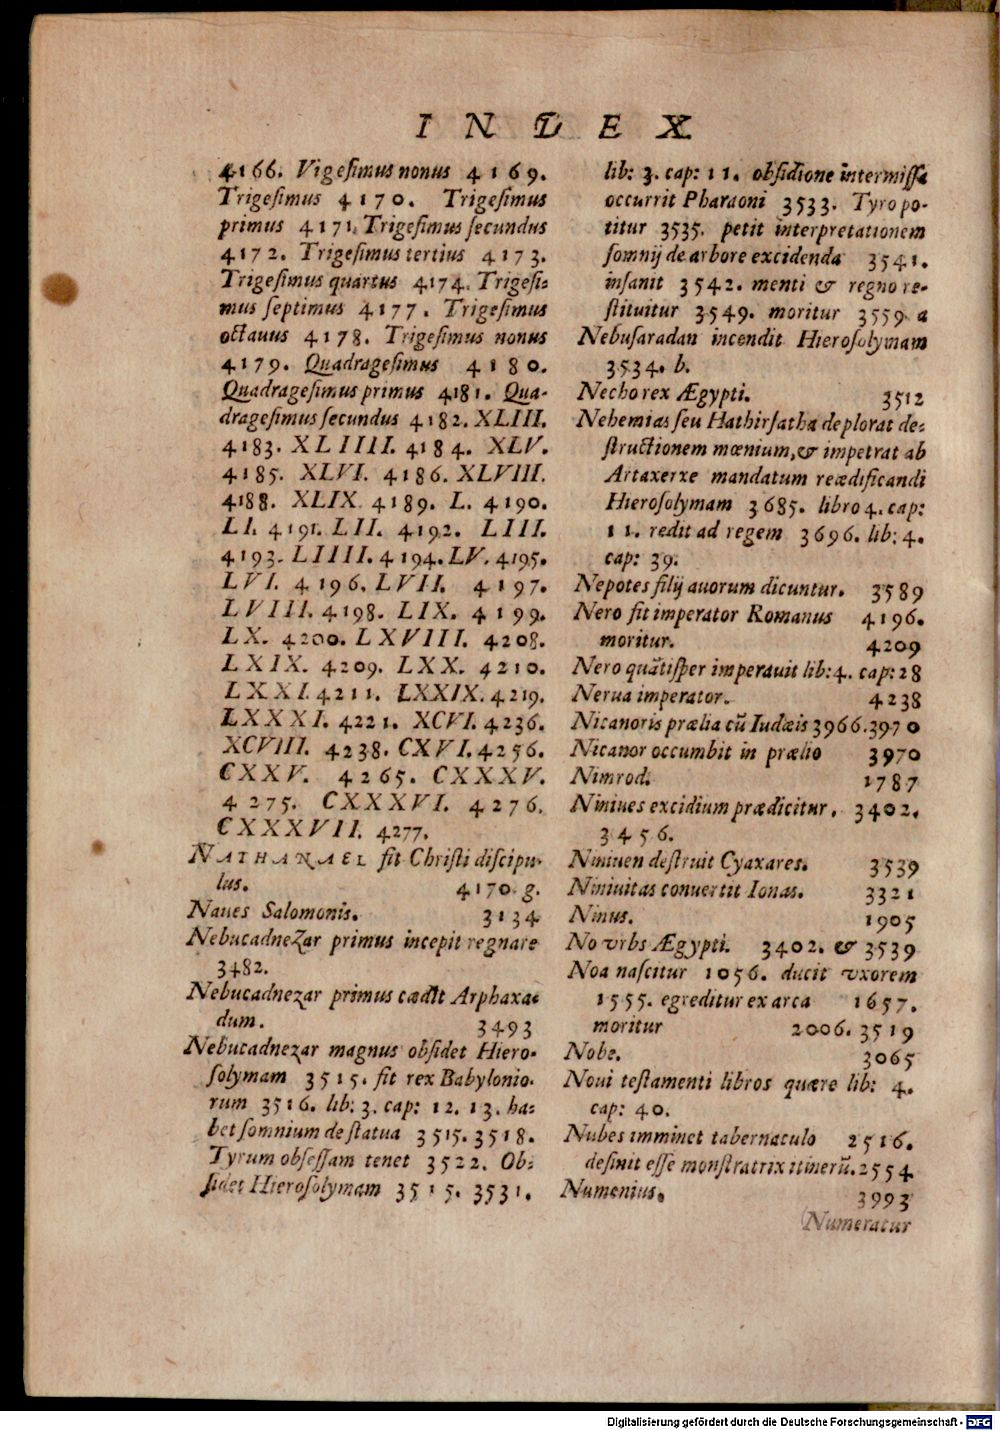 INDEX
4166. Vigeſimus nonus 4169.
Trigeſimus 4170. Trigeſimus
primus 4171. Trigeſimus ſecundus
4172. Trigeſimus tertius 4173.
Trigeſimus quartus 4174. Trigeſi:
mus ſeptimus 4177. Trigeſimus
octauus 4178. Trigeſimus nonus
4179. Quadrageſimus 4180.
Quadrageſimus primus 4181. Qua-
drageſimus ſecundus 4182. XLIII.
4183. XLIIII. 4184. XLV.
4185. XLVI. 4186. XLVIII.
4188. XLIX. 4189. L. 4190.
LI. 4191. LII. 4192. LIII.
4193. LIIII. 4194. LV. 4195.
LVI. 4196. LVII. 4197.
LVIII. 4198. LIX. 4199.
LX. 4200. LXVIII. 4208.
LXIX. 4209. LXX. 4210.
LXXI. 4211. LXXIX. 4219.
LXXXI. 4221. XCVI. 4236.
XCVIII. 4238. CXVI. 4256.
CXXV. 4265. CXXXV.
4275. CXXXVI. 4276.
CXXXVII. 4277.
NATHANAEL fit Chriſti diſcipu-
lus. 4170 g.
Naues Salomonis. 3134
Nebucadnezar primus incepit regnare
3482.
Nebucadnezar primus cædit Arphaxa-
dum. 3493
Nebucadnezar magnus obſidet Hiero-
ſolymam 3515. fit rex Babylonio-
rum 3516. lib: 3. cap: 12. 13. ha:
bet ſomnium de ſtatua 3515. 3518.
Tyrum obſeſſam tenet 3522. Ob:
ſidet Hieroſolymam 3515. 3531.
lib: 3. cap: 11. obſidione intermiſſa
occurrit Pharaoni 3533. Tyro po-
titur 3535. petit interpretationem
ſomnij de arbore excidenda 3541.
inſanit 3542. menti & regno re-
ſtituitur 3549. moritur 3559 a
Nebuſaradan incendit Hieroſolymam
3534. b.
Necho rex Ægypti. 3512
Nehemias ſeu Hathirſatha deplorat de:
ſtructionem mœnium, & impetrat ab
Artaxerxe mandatum reædificandi
Hieroſolymam 3685. libro 4. cap:
11. redit ad regem 3696. lib: 4.
cap: 39.
Nepotes filij auorum dicuntur. 3589
Nero fit imperator Romanus 4196.
moritur. 4209
Nero quãtiſper imperauit lib: 4. cap: 28
Nerua imperator. 4238
Nicanoris prælia cũ Iudæis 3966. 3970
Nicanor occumbit in prælio 3970
Nimrod. 1787
Niniues excidium prædicitur. 3402.
3456.
Niniuen deſtruit Cyaxares. 3539
Niniuitas conuertit Ionas. 3321
Ninus. 1905
No vrbs Ægypti. 3402. & 3539
Noa naſcitur 1056. ducit vxorem
1555. egreditur ex arca 1657.
moritur 2006. 3519
Nobe. 3065
Noui teſtamenti libros quære lib: 4.
cap: 40.
Nubes imminet tabernaculo 2516.
deſinit eſſe monſtratrix itinerũ. 2554
Numenius. 3993
Numeratur
Digitalisierung gefördert durch die Deutsche Forschungsgemeinschaft - DFG